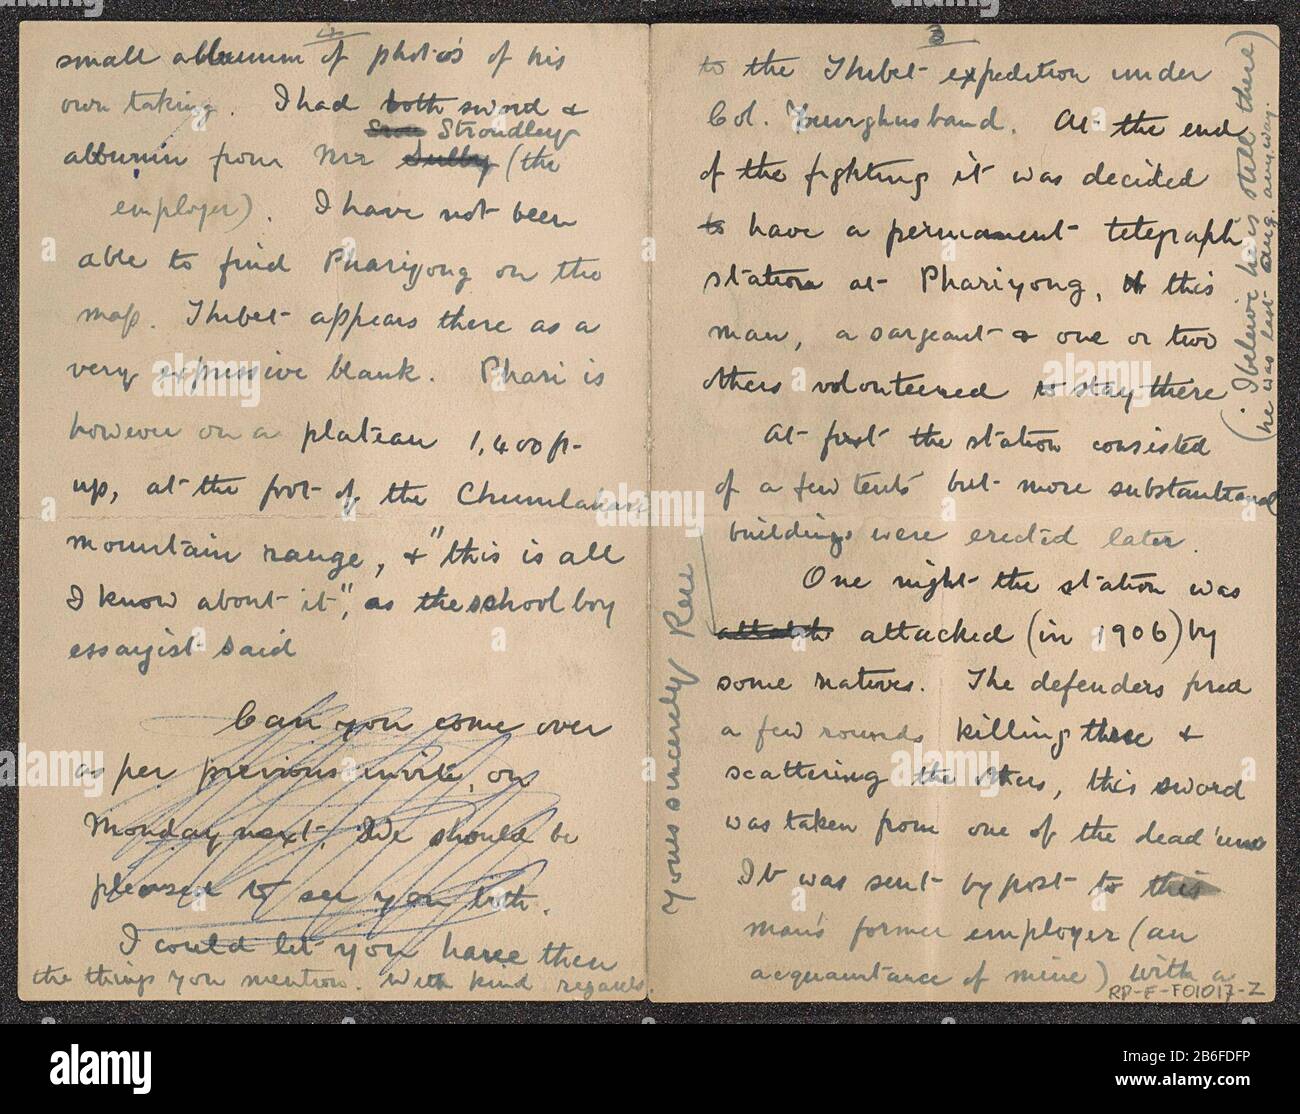 3
to the Thibet expedition under
Col. Younghusband. At the end
of the fighting it was decided
to have a permanent telegraph
station at Phariyong, & this
man, a sargeant & one or two
others volonteered to stay there
(I believe he is still there)
he was last aug anyway.
At first the station consisted
of a few tents but more substantial
buildings were erected later.
One night the station was
attacked (in 1906) by
some natives. The defenders fired
a few rounds killing three &
scattering the others, this sword
was taken from one of the dead 'uns
It was sent by post to this
man's former employer (an
acquaintance of mine) with a
RP-F-F01017-Z
4
small albumm of photo's of his
own taking. I had both sword &
Stroudley
albumm from Mr Sulby (the
employer). I have not been
able to find Phariyong on the
map. Thibet appears there as a
very expressive blank. Phari is
however on a plateau 1,400 ft
up, at the foot of the Chumlahari
mountain range, & "this is all
I know about it", as the school boy
essayist said
Can you come over
as per previous invite, on
Monday next. We should be
pleased to see you both.
I could let you have then
the things you mention. With kind regards.
Yours sincerely
alamy
Image ID: 2B6FDFP
www.alamy.com